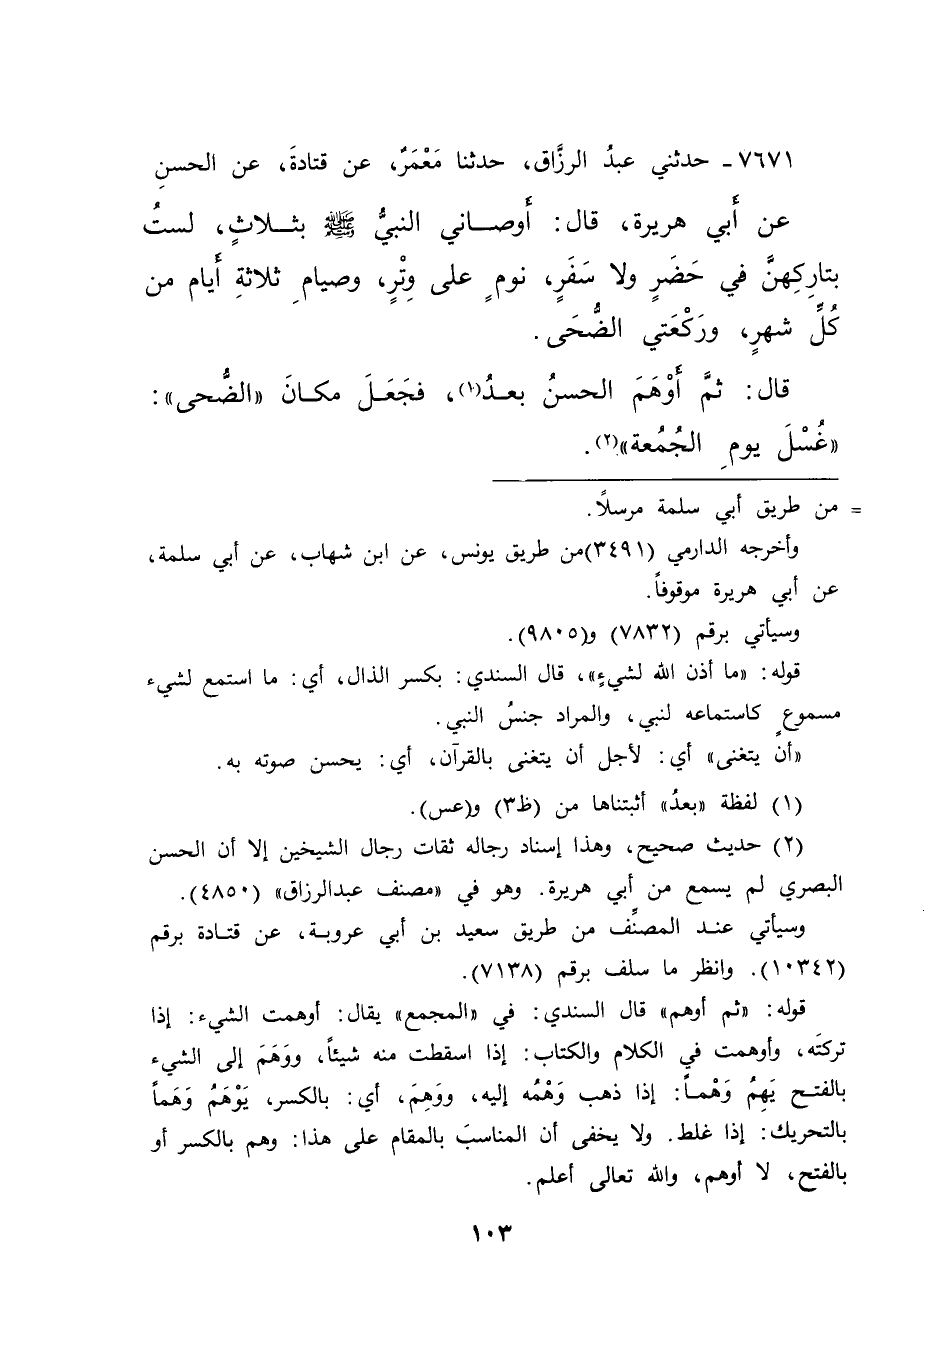 ٧٦٧١ ـ حدثني عبدُ الرزَّاق، حدثنا مَعْمَرٌ، عن قتادةَ، عن الحسنِ
عن أَبي هريرة، قال: أَوصـــاني النبيُّ ﷺ بثـــلاثٍ، لستُ
بتارِكِهنَّ في حَضَرٍ ولا سَفَرٍ، نومٍ على وِتْرٍ، وصيامِ ثلاثةِ أَيام من
كُلِّ شهرٍ، ورَكْعَتي الضُّحَى.
قال: ثمَّ أَوْهَمَ الحسنُ بعدُ(١)، فجَعَلَ مكانَ «الضُّحى»:
«غُسْلَ يومِ الجُمُعة»(٢).
= من طريق أبي سلمة مرسلاً.
وأخرجه الدارمي (٣٤٩١)من طريق يونس، عن ابن شهاب، عن أبي سلمة،
عن أبي هريرة موقوفاً.
وسيأتي برقم (٧٨٣٢) و(٩٨٠٥).
قوله: «ما أذن الله لشيءٍ»، قال السندي: بكسر الذال، أي: ما استمع لشيء
مسموعٍ كاستماعه لنبي، والمراد جنسُ النبي.
«أن يتغنى» أي: لأجل أن يتغنى بالقرآن، أي: يحسن صوته به.
(١) لفظة «بعدُ» أثبتناها من (ظ٣) و(عس).
(٢) حديث صحيح، وهذا إسناد رجاله ثقات رجال الشيخين إلا أن الحسن
البصري لم يسمع من أبي هريرة. وهو في «مصنف عبدالرزاق» (٤٨٥٠).
وسيأتي عند المصنِّف من طريق سعيد بن أبي عروبة، عن قتادة برقم
(١٠٣٤٢). وانظر ما سلف برقم (٧١٣٨).
قوله: «ثم أوهم» قال السندي: في «المجمع» يقال: أوهمت الشيء: إذا
تركتَه، وأوهمت في الكلام والكتاب: إذا اسقطت منه شيئاً، ووَهَمَ إلى الشيء
بالفتح يَهِمُ وَهْماً: إذا ذهب وَهْمُه إليه، ووَهِمَ، أي: بالكسر، يَوْهَمُ وَهَماً
بالتحريك: إذا غلط. ولا يخفى أن المناسبَ بالمقام على هذا: وهم بالكسر أو
بالفتح، لا أوهم، والله تعالى أعلم.
١٠٣